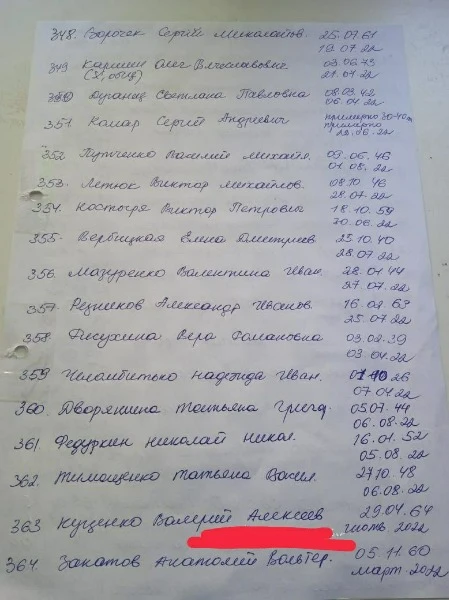 348. Ворочек Сергій Миколайов. 25.07.61
19.07.22
349 Каришин Олег Вячеславович 03.06.73
21.04.22
350 Світлана Павловна 08.03.42
06.04.22
351. Комар Сергій Андрієвич примерно 30-40л
примарно
22.06.22
352 Путченко Василий Михайл. 09.06.46
01.08.22
353. Виктор Михайлов. 08.10.46
28.07.22
354. Костогрз Виктор Петровиы 18.10.59
30.06.22
355. Вербицкая Елена Дмитриев. 25.10.40
28.07.22
356. Мазуренко Валентина Иван. 28.01.44
27.07.22
357. Резников Александр Иванов. 16.02.63
25.07.22
358. Фисухина Вера Романовна 03.02.39
03.04.22
359 Надежда Иван. 26
07.04.22
360. Дворянина Татьяна Григор. 05.07.44
06.08.22
361. Федуркин Николай Никол. 16.01.52
05.08.22
362. Тимощенко Татьяна Васил. 27.10.48
06.08.22
363 Куценко Валерий Алексеев 29.04.64
июль 2022
364. Закатов Анатолий Вольтер. 05.11.60
март. 2022